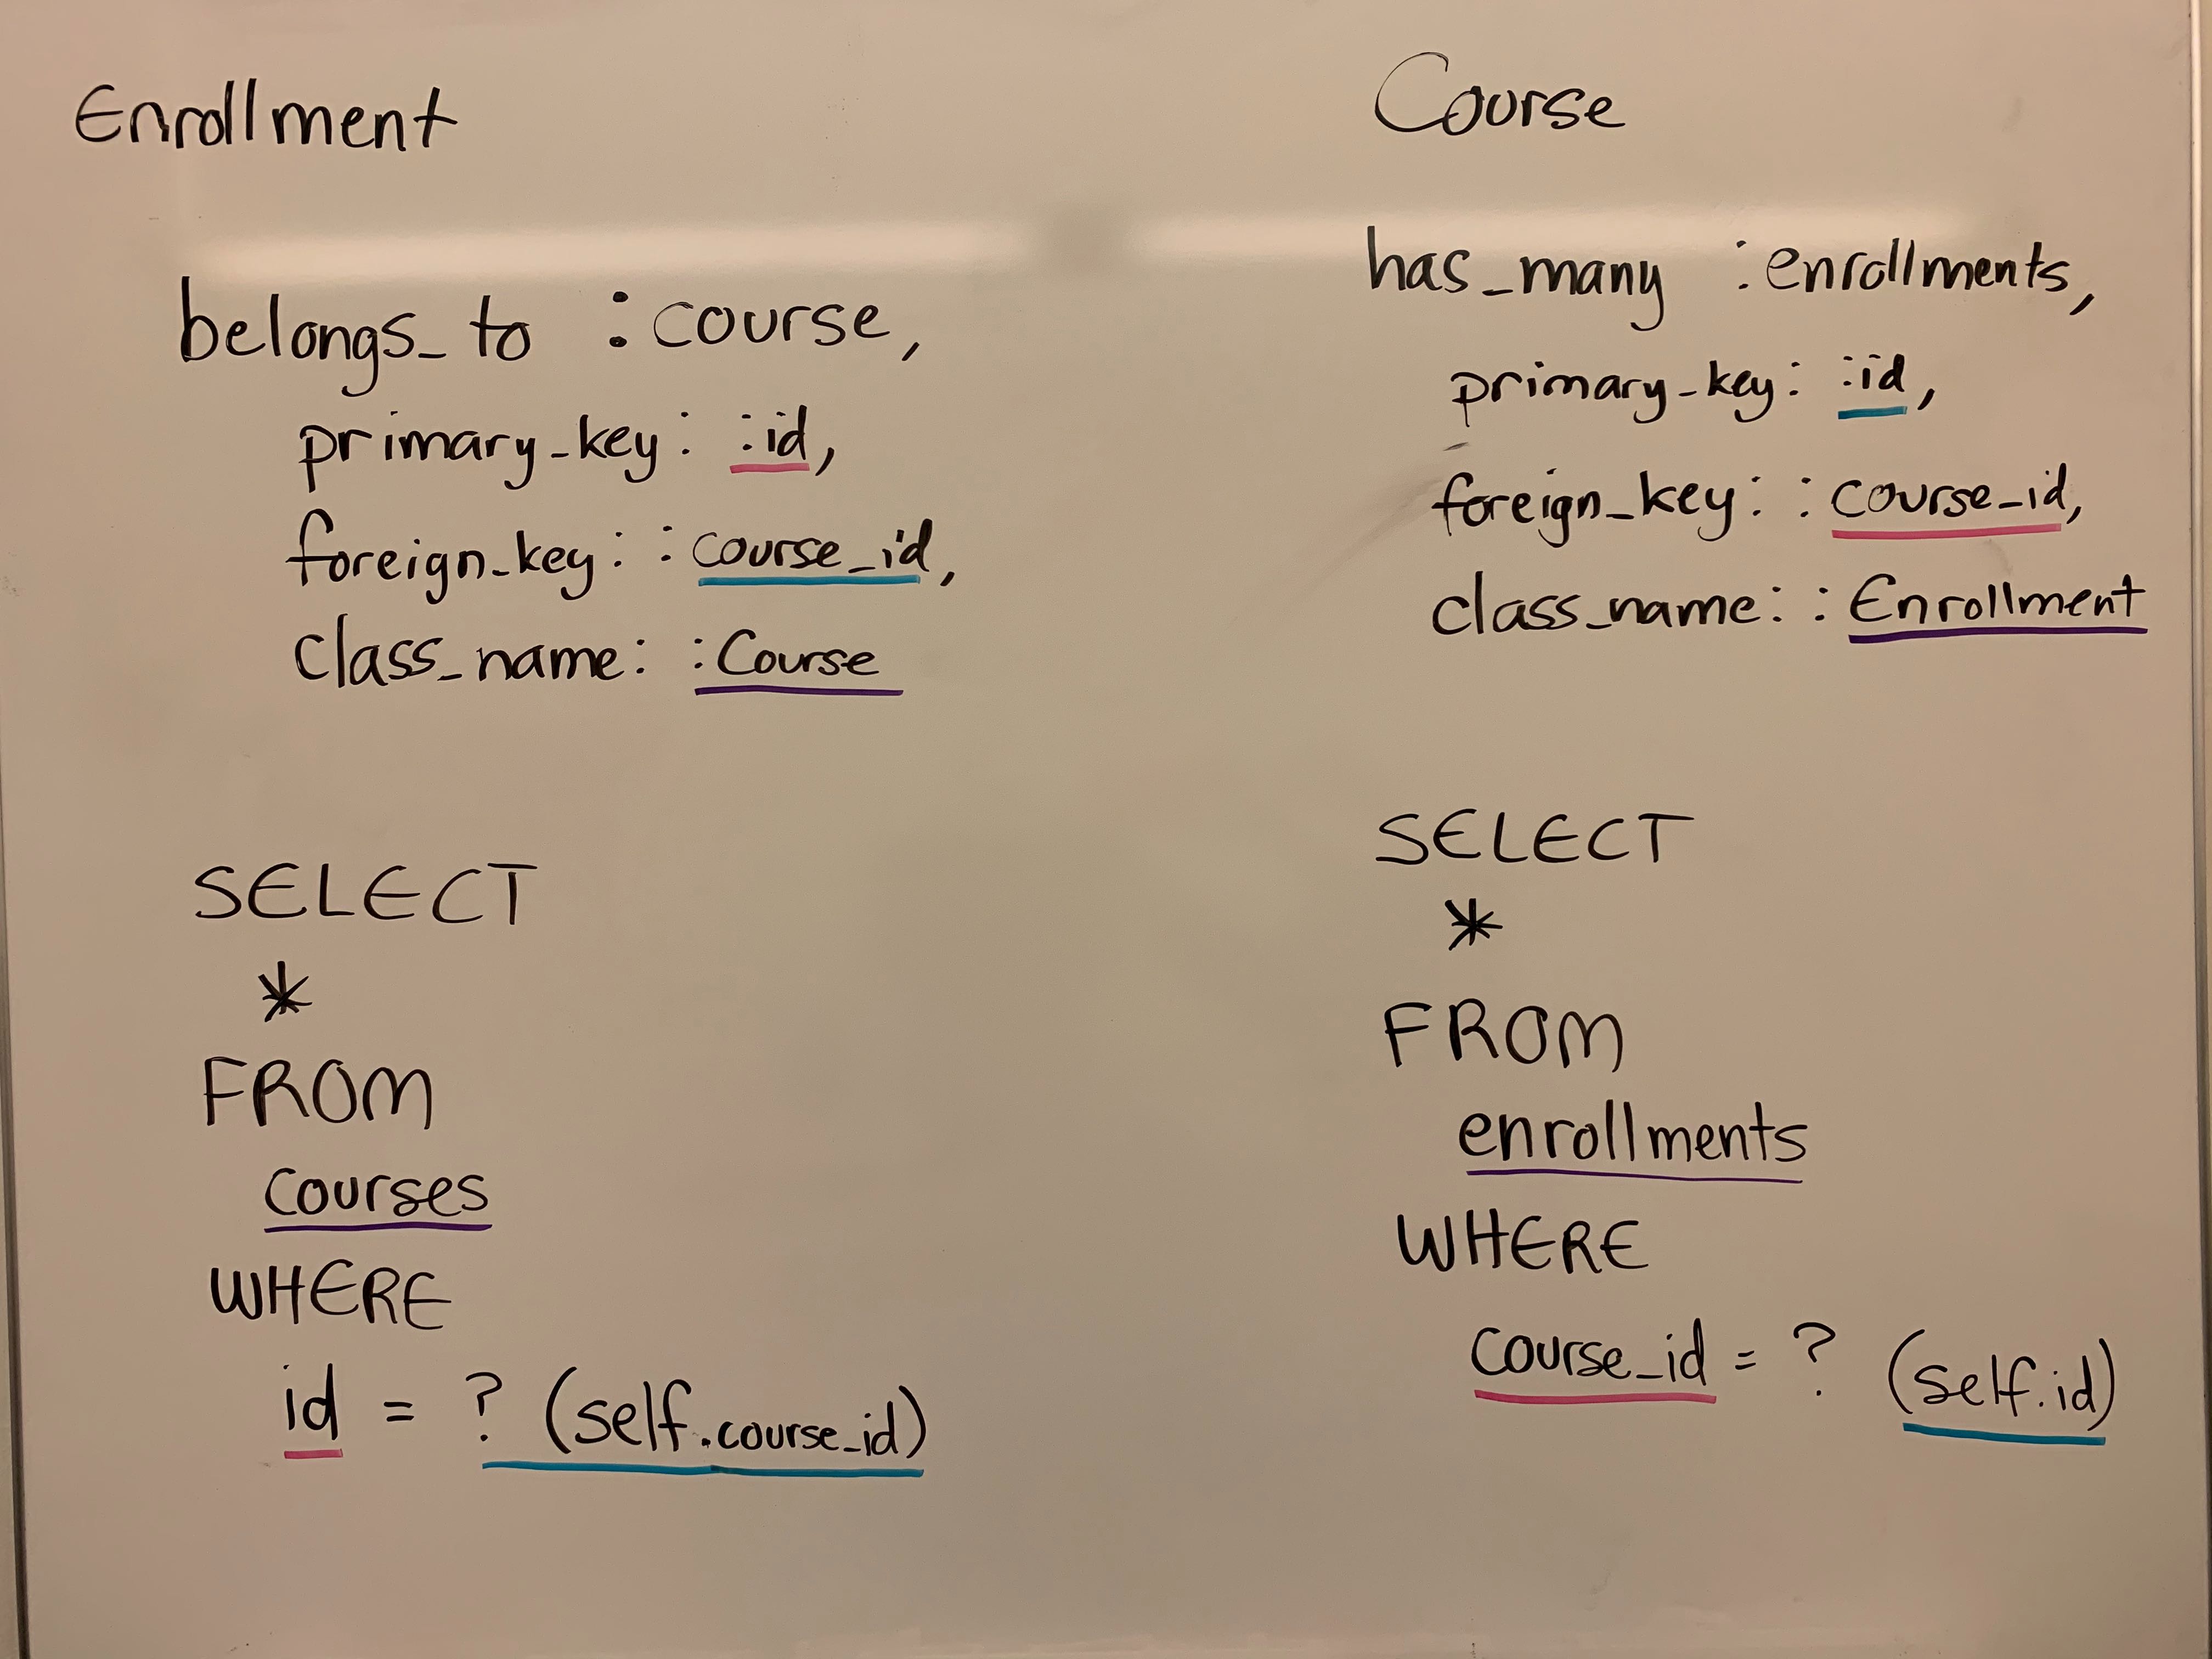 Enrollment
belongs_to :course,
primary_key: :id,
foreign_key: :course_id,
class_name: :Course
SELECT
*
FROM
courses
WHERE
id = ? (self.course_id)
Course
has_many :enrollments,
primary_key: :id,
foreign_key: :course_id,
class_name: :Enrollment
SELECT
*
FROM
enrollments
WHERE
course_id = ? (self.id)